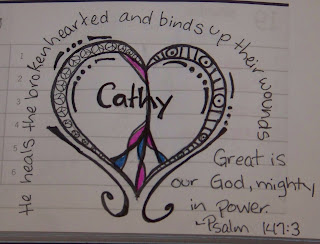 He heals the brokenhearted and binds up their wounds
Cathy
Great is
our God, mighty
in power.
~Psalm 147:3